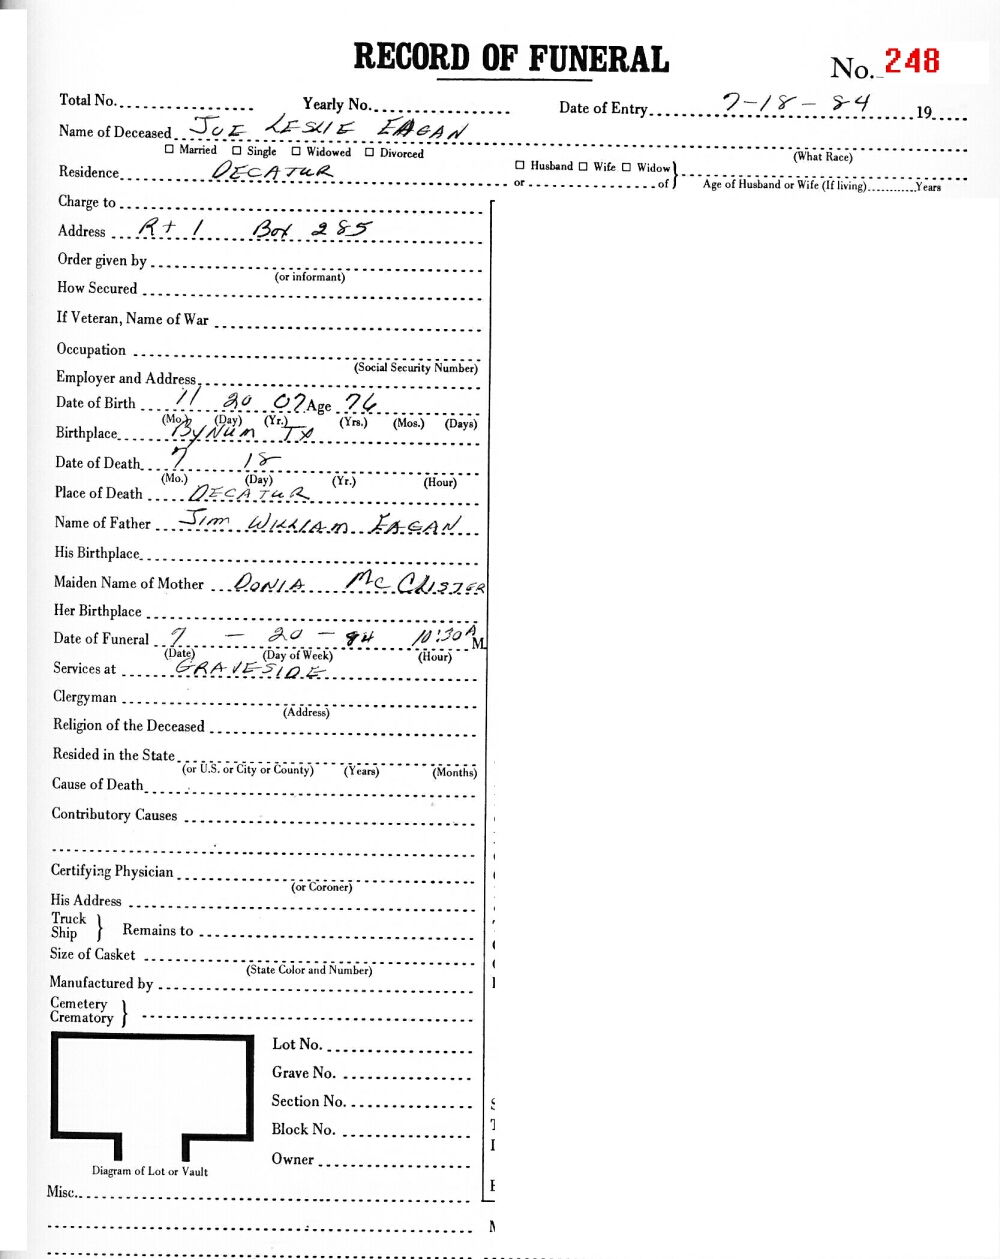 RECORD OF FUNERAL
No. 248
Total No. Yearly No. Date of Entry 7-18-84 19
Name of Deceased JOE LESLIE EAGAN
☐ Married ☐ Single ☐ Widowed ☐ Divorced (What Race)
Residence DECATUR ☐ Husband ☐ Wife ☐ Widow
or of Age of Husband or Wife (If living) Years
Charge to
Address Rt 1 Box 285
Order given by
(or informant)
How Secured
If Veteran, Name of War
Occupation
(Social Security Number)
Employer and Address
Date of Birth 11 20 07 Age 76
(Mo.) (Day) (Yr.) (Yrs.) (Mos.) (Days)
Birthplace BYNUM TX
Date of Death 7 18
(Mo.) (Day) (Yr.) (Hour)
Place of Death DECATUR
Name of Father JIM WILLIAM EAGAN
His Birthplace
Maiden Name of Mother DONIA MC CLISTER
Her Birthplace
Date of Funeral 7 - 20 - 84 10:30 A M.
(Date) (Day of Week) (Hour)
Services at GRAVESIDE
Clergyman
(Address)
Religion of the Deceased
Resided in the State
(or U.S. or City or County) (Years) (Months)
Cause of Death
Contributory Causes
Certifying Physician
(or Coroner)
His Address
Truck
Ship } Remains to
Size of Casket
(State Color and Number)
Manufactured by
Cemetery
Crematory }
Lot No.
Grave No.
Section No.
Block No.
Owner
Diagram of Lot or Vault
Misc.